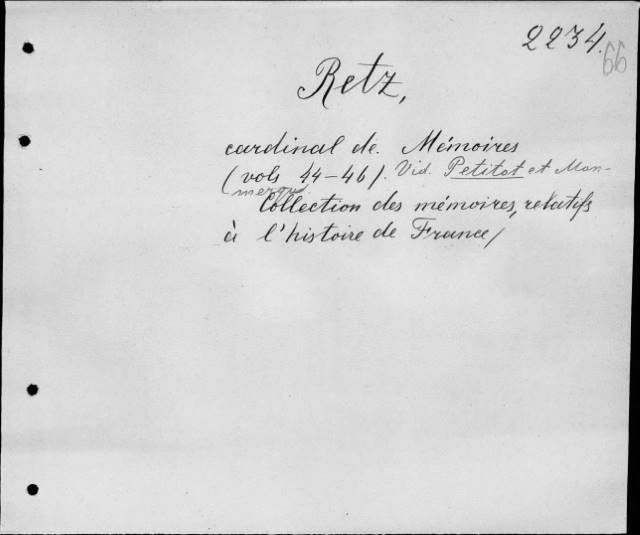 2234.
66
Retz,
cardinal de. Mémoires
(vols 44-46). Vid. Petitot et Mon-
merqué.
Collection des mémoires, relatifs
à l'histoire de France)